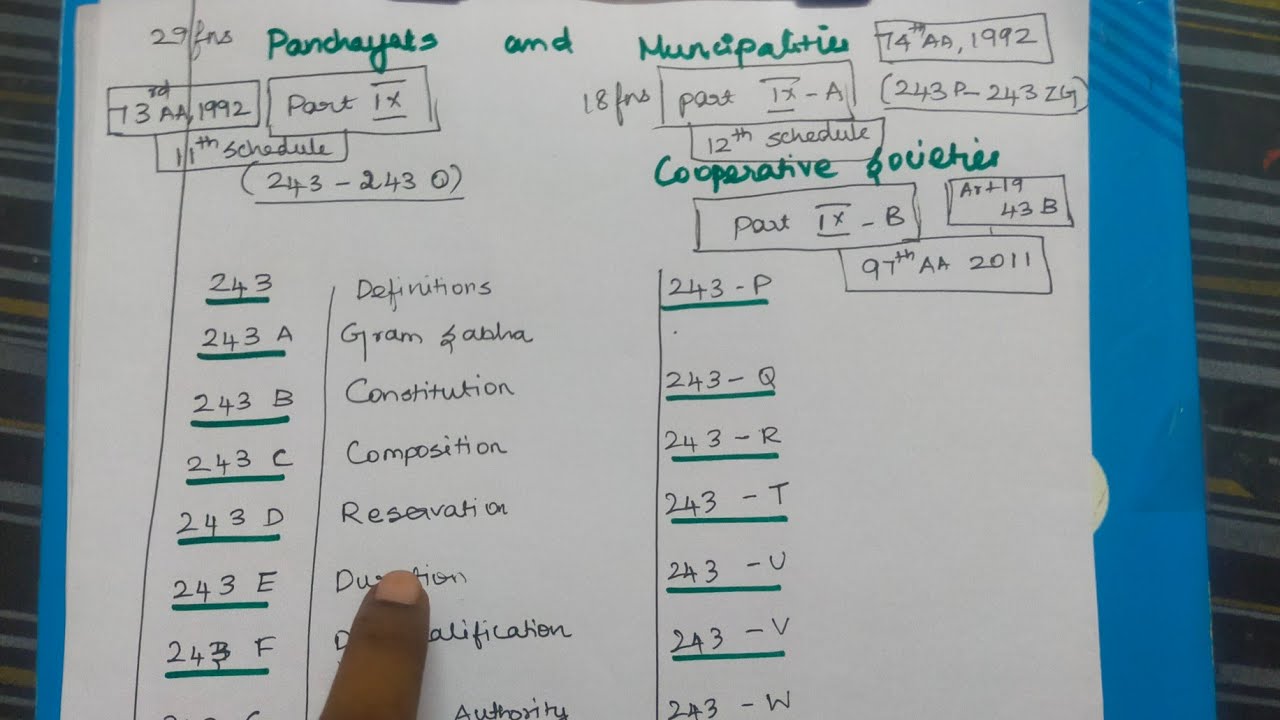 29 fns Panchayats and Muncipalities 74th AA, 1992
73rd AA, 1992 Part IX 18 fns part IX - A (243 P - 243 ZG)
11th schedule 12th schedule
(243 - 243 O) Cooperative Societies
Part IX - B Art 19
43 B
97th AA 2011
243 Definitions 243 - P
243 A Gram Sabha
243 B Constitution 243 - Q
243 C Composition 243 - R
243 D Reservation 243 - T
243 E 243 - U
243 F 243 - V
Authority 243 - W